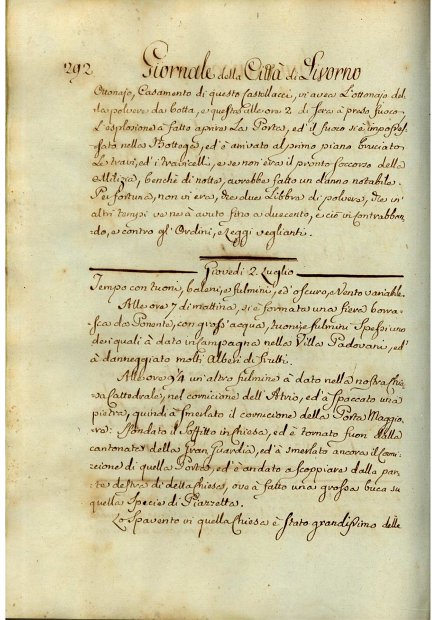 292 Giornale della Città di Livorno
Ottonajo, Casamento di questo Castellacci, vi avea L'ottonajo del
la polvere da botta, e questa alle ore 2 di sera à preso fuoco
L'esplosione à fatto aprire La Porta, ed il fuoco si è impossess
essato nella Bottega, ed è arrivato al primo piano bruciato
Le travi, ed i travicelli, e se non v'era il pronto soccorso della
Milizia, benchè di notte, avrebbe fatto un danno notabile.
Per fortuna, non vi era, che due Libbra di polvere, che in
altri tempi ve ne à avuto fino a duecento, e ciò in Contrabban-
do, e contro gl'Ordini, e Leggi veglianti.
Giovedì 2. Luglio
Tempo con tuoni, baleni, e fulmini, ed oscuro, e Vento variabile.
Alle ore 7 di mattina, si è formata una fiera borra-
sca da Ponente, con gross'acqua, tuoni, e fulmini spessi, uno
dei quali à dato in Campagna nella Villa Padovani, ed
à danneggiato molti Alberi di frutti.
Alle ore 9¼ un'altro fulmine à dato nella nostra Chie
sa Cattedrale, nel cornicione dell'Atrio, ed à spaccato una
pietra, quindi à smerlato il cornicione della Porta Maggio
re: Sfondato il Soffitto in Chiesa, ed è tornato fuori dalla
cantonata della Gran Guardia, ed à smerlato ancora il Corni-
cione di quella Porta, ed è andato a scoppiare dalla par-
te destra di detta Chiesa, ove à fatto una grossa buca su
quella specie di Piazzetta.
Lo spavento in quella Chiesa è stato grandissimo delle